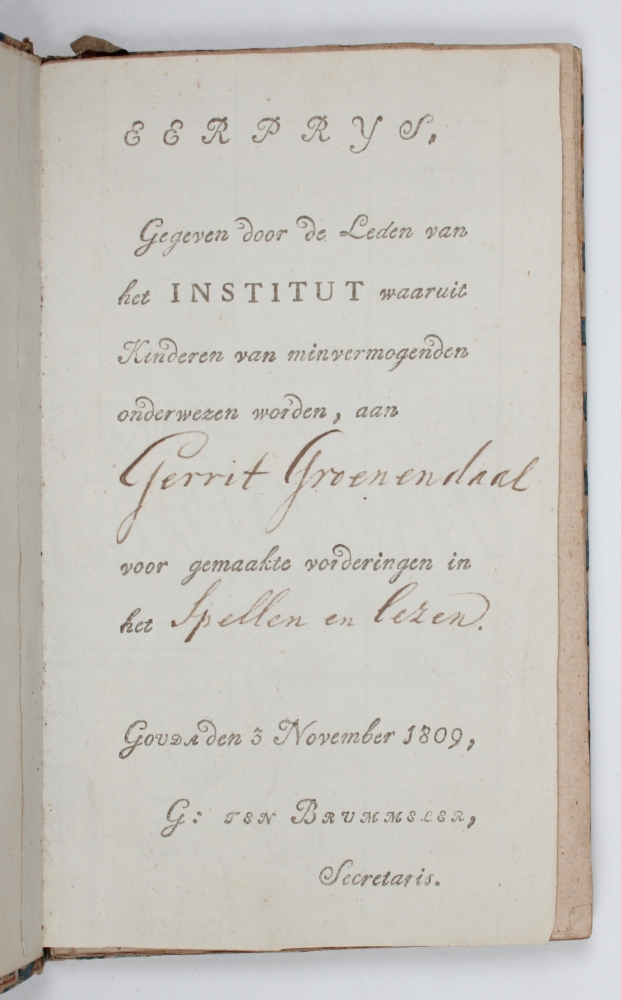 EERPRYS,
Gegeven door de Leden van
het INSTITUT waaruit
Kinderen van minvermogenden
onderwezen worden, aan
Gerrit Groenendaal
voor gemaakte vorderingen in
het Spellen en lezen.
GOUDA den 3 November 1809,
G: TEN BRUMMELER,
Secretaris.